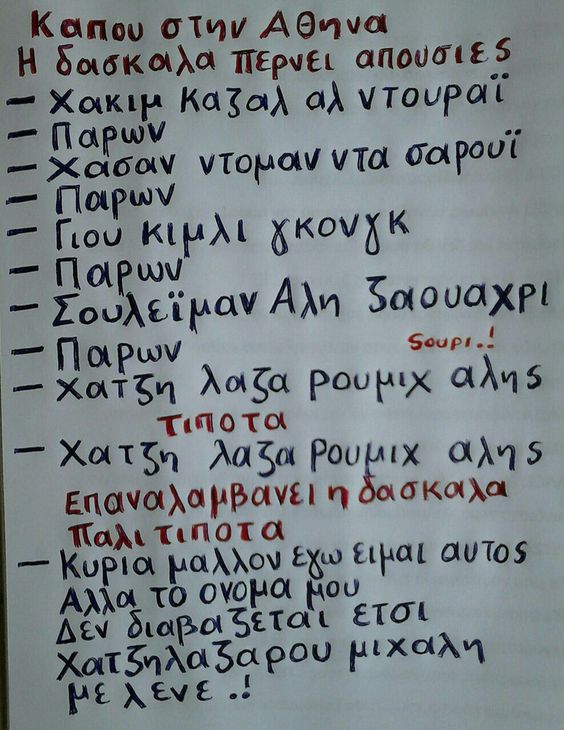 Καπου στην Αθηνα
Η δασκαλα περνει απουσιες
– Χακιμ Καζαλ αλ ντουραϊ
– Παρων
– Χασαν ντομαν ντα σαρουϊ
– Παρων
– Γιου κιμλι γκονγκ
– Παρων
– Σουλεϊμαν Αλη ζαουαχρι
– Παρων
Sουρι.!
– Χατζη λαζα ρουμιχ αλης
τιποτα
– Χατζη λαζα Ρουμιχ αλης
Επαναλαμβανει η δασκαλα
Παλι τιποτα
– Κυρια μαλλον εγω ειμαι αυτος
Αλλα το ονομα μου
Δεν διαβαζεται ετσι
Χατζηλαζαρου μιχαλη
με λενε .!